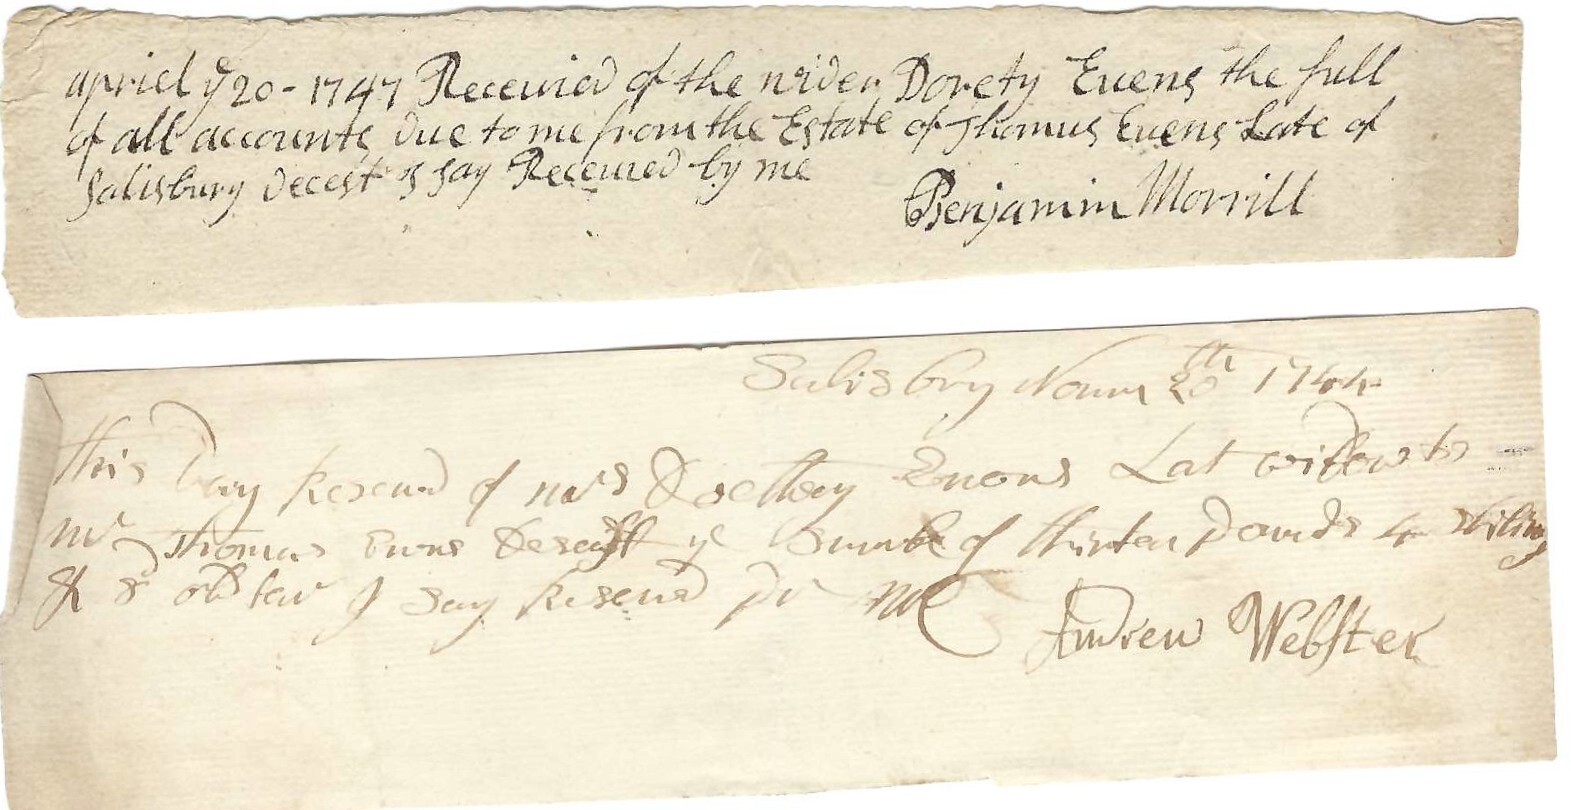 apriel ye 20 - 1747 Receuied of the wider Dorety Euens the full
of all accounts due to me from the Estate of Thomus Euens Late of
Salisbury Decest I say Receiued by me
Benjamin Morrill
Salisbry Noum 20th 1744
this Day Reseud of mrs Dorethey Euons Lat widow to
mr Thomas Euns Deseast ye Sum of thirten Pounds 4 shiling
& 8 old tenr I Say Reseud pr me
Andrew Webster